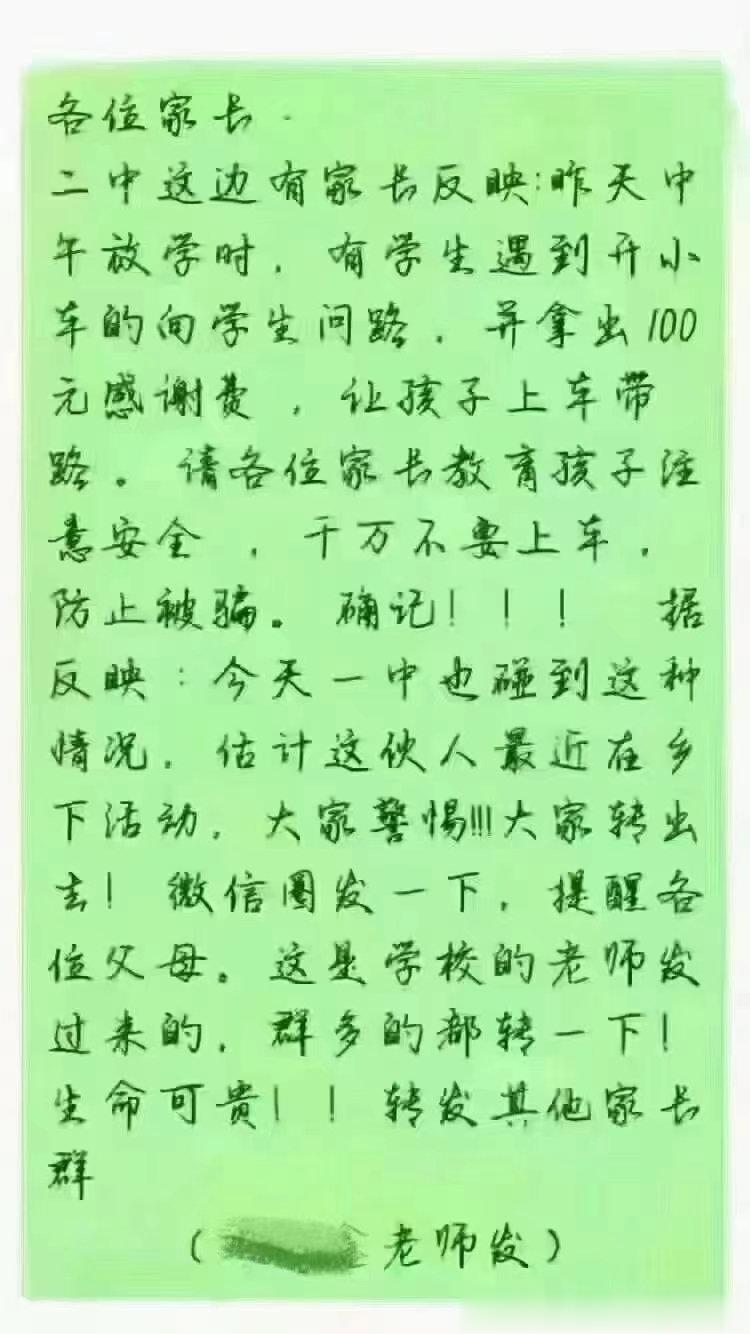 各位家长.
二中这边有家长反映:昨天中
午放学时，有学生遇到开小
车的向学生问路，并拿出100
元感谢费，让孩子上车带
路。请各位家长教育孩子注
意安全，千万不要上车，
防止被骗。确记！！！ 据
反映：今天一中也碰到这种
情况，估计这伙人最近在乡
下活动，大家警惕!!!大家转出
去！微信圈发一下，提醒各
位父母。这是学校的老师发
过来的，群多的都转一下！
生命可贵！！转发其他家长
群
（ 老师发）